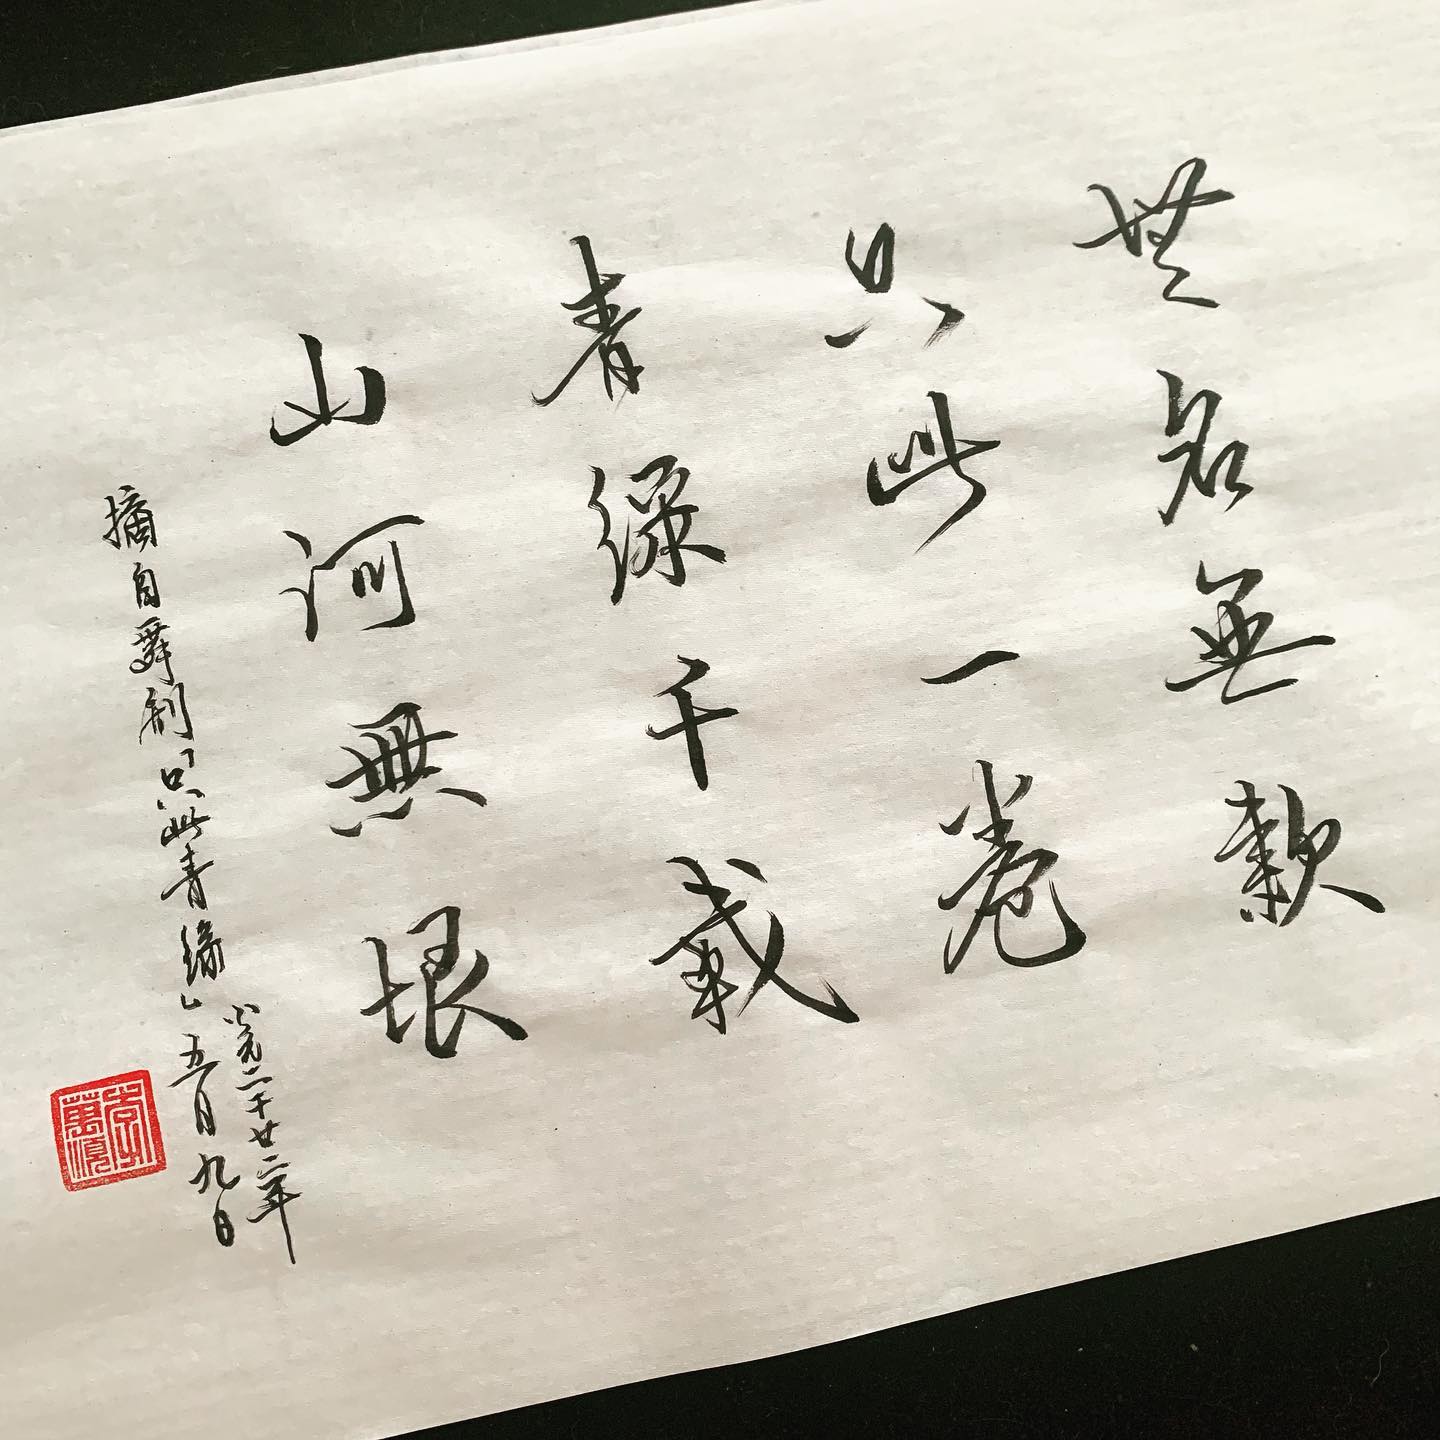 無名無款
只此一卷
青綠千載
山河無垠
摘自舞劇「只此青綠」
公元二千廿二年
五月九日